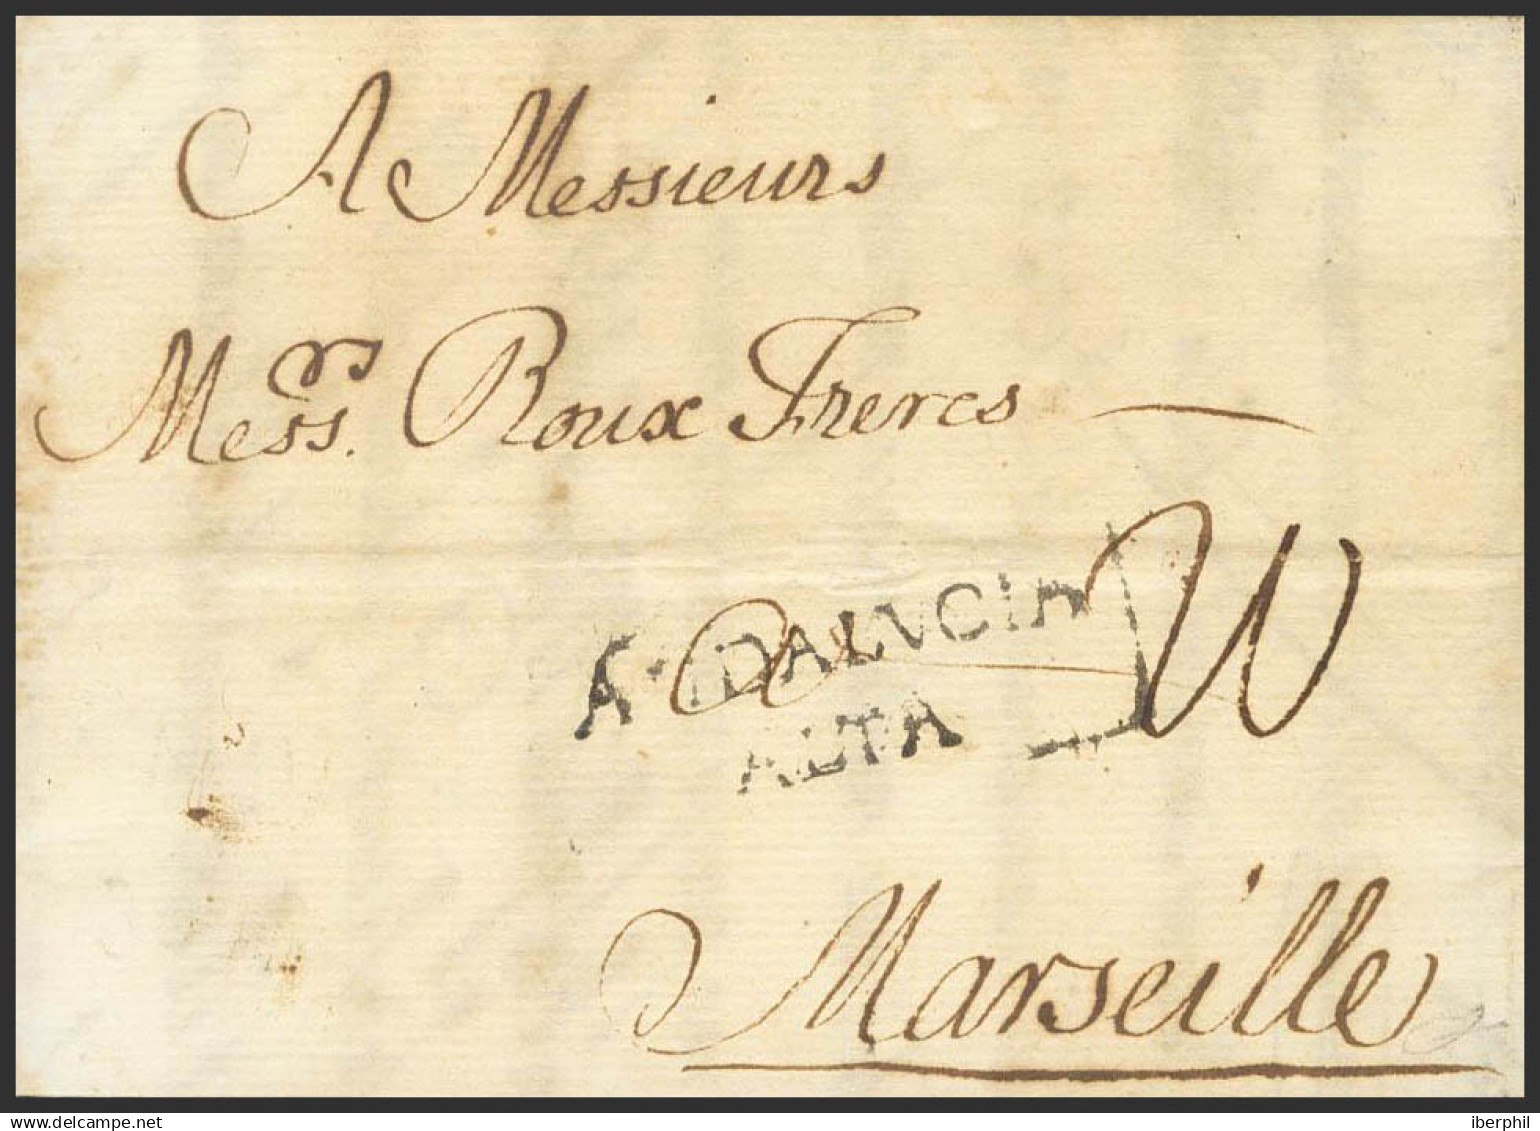 A Messieurs
Mess.rs Roux Freres
ANDALVCIA
ALTA
Marseille
delcampe.net
iberphil